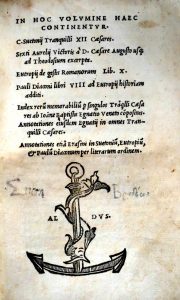 IN HOC VOLVMINE HAEC
CONTINENTVR.
C. Suetonij Tranquilli XII Caesares.
Sexti Aurelij Victoris à D. Caesare Augusto usq;
ad Theodosium excerpta.
Eutropij de gestis Romanorum Lib. X.
Pauli Diaconi libri VIII ad Eutropij historiam
additi.
Index rerū memorabiliū p singulos Trāqlli Caesa
res ab Ioāne Baptista Egnatio Veneto cōpositus.
Annotationes eiusdem Egnatij in omneis Tran-
quilli Caesares.
Annotationes etiā Erasmi in Suetoniū, Eutropiū,
& Pauliū Diaconum per literarum ordinem.
AL DVS.